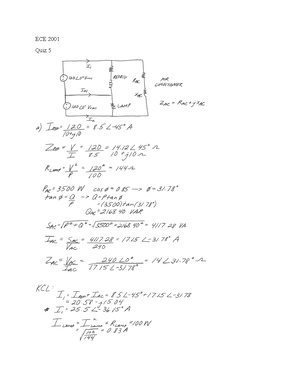 ECE 2001
Quiz 5
I₁
120∠0° Vrms
REFRIG
R_AC
X_AC
AIR
CONDITIONER
I_AC
120∠0° Vrms
LAMP
Z_AC = R_AC + jX_AC
a) I_REF = 120 / 10+j10 = 8.5∠-45° A
Z_REF = V/I = 120/8.5 = 14.12∠45° Ω
10+j10 Ω
R_LAMP = V²/P = 120²/100 = 144 Ω
P_AC = 3500 W cos ϕ = 0.85 → ϕ = 31.78°
tan ϕ = Q/P → Q = P tan ϕ
= (3500) tan(31.78°)
Q_AC = 2168.40 VAR
S_AC = √P² + Q² = √3500² + 2168.40² = 4117.28 VA
I_AC = S_AC/V_AC = 4117.28/240 = 17.15∠-31.78° A
Z_AC = V_AC/I_AC = 240∠0°/17.15∠-31.78° = 14∠31.78° Ω
KCL:
I₁ = I_REF + I_AC = 8.5∠-45° + 17.15∠-31.78
= 20.58 - j15.04
* I₁ = 25.5∠-36.15° A
I_LAMP = I²_LAMP × R_LAMP = 100W
= √100/144 = 0.83 A